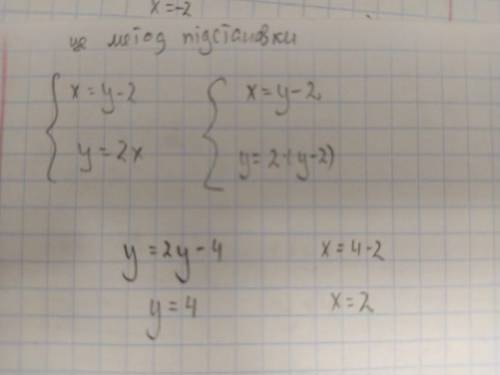 x=-2
це метод підстановки
{ x = y - 2 { x = y - 2
y = 2x y = 2·(y-2)
y = 2y - 4 x = 4 - 2
y = 4 x = 2